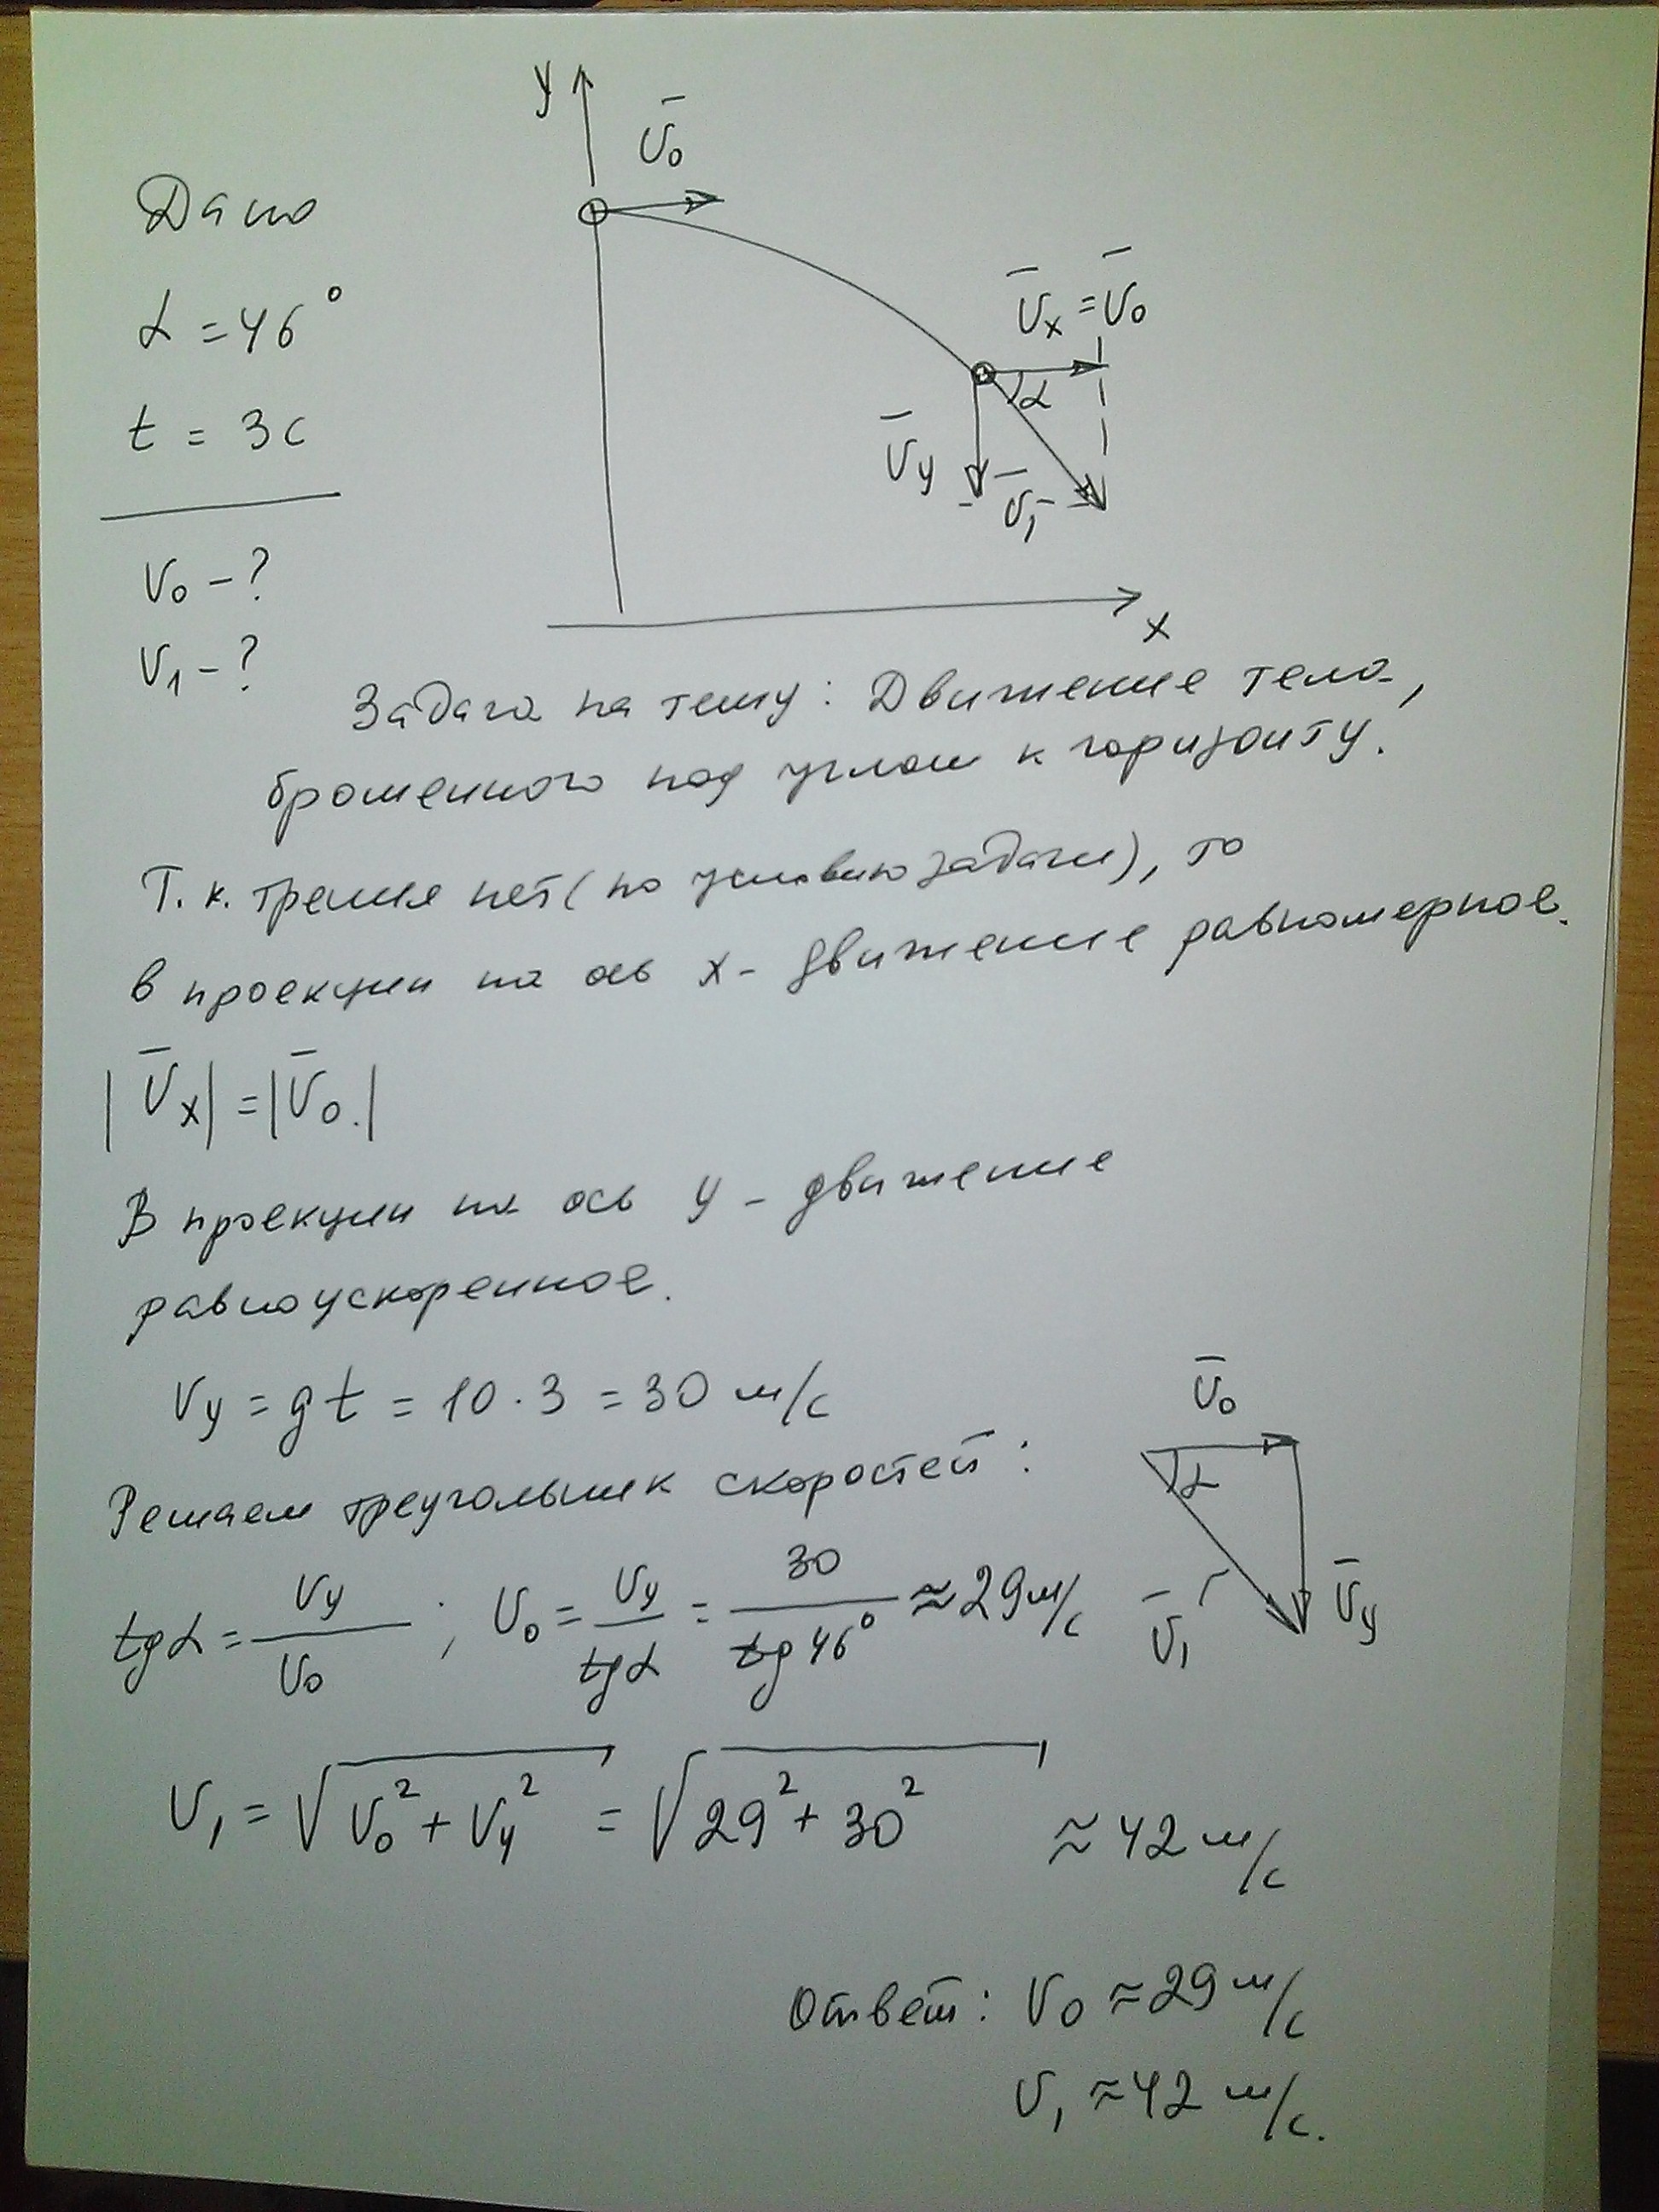 y
V̄₀
Дано
α = 46°
t = 3 с
V₀ – ?
V₁ – ?
V̄ₓ = V̄₀
α
V̄y
V̄₁
x
Задача на тему: Движение тела,
брошенного под углом к горизонту.
Т. к. трения нет (по условию задачи), то
в проекции на ось x – движение равномерное.
|V̄ₓ| = |V̄₀.|
В проекции на ось y – движение
равноускоренное.
Vy = gt = 10 · 3 = 30 м/с
Решаем треугольник скоростей:
V̄₀
α
V̄₁
V̄y
tgα = Vy/V₀ ; V₀ = Vy/tgα = 30/tg 46° ≈ 29 м/с
V₁ = √(V₀² + Vy²) = √(29² + 30²) ≈ 42 м/с
Ответ: V₀ ≈ 29 м/с
V₁ ≈ 42 м/с.